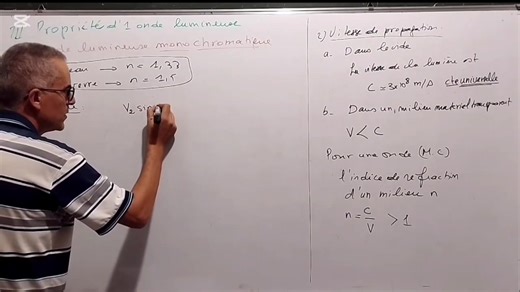 III Propriété d'1 onde lumineuse
lumineuse monochromatique
eau → n = 1,33
verre → n = 1,5
V₂ sin
2) Vitesse de propagation
a. Dans le vide
la vitesse de la lumière est
C = 3x10⁸ m/s cte universelle
b. Dans un milieu materiel transparent
V < C
Pour une onde (M.C)
l'indice de refraction
d'un milieu n
n = C/V > 1